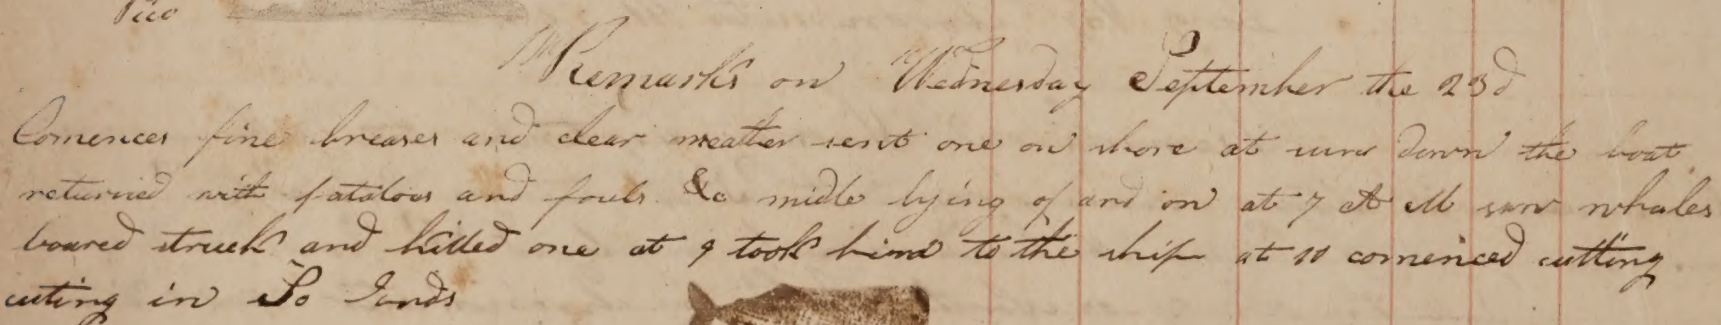 Pico
Remarks on Wednesday September the 23d
Comences fine breases and clear weather sent one on shore at sun down the boat
returned with patatoes and fouls &c midle lying of and on at 7 A M saw whales
loared struck and killed one at 9 took him to the ship at 10 comenced cutting
cuting in So Ends